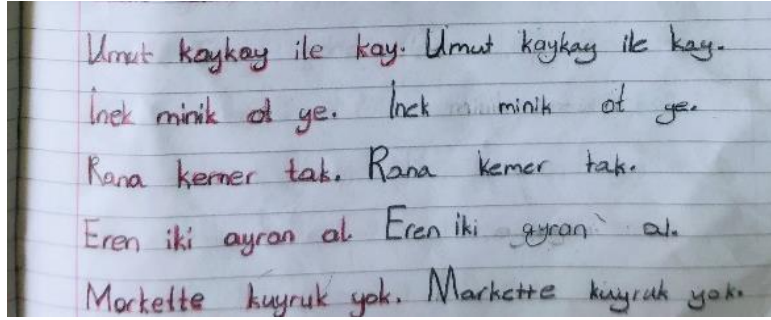 Umut kaykay ile kay. Umut kaykay ile kay.
İnek minik ot ye. İnek minik ot ye.
Rana kemer tak. Rana kemer tak.
Eren iki ayran al. Eren iki ayran al.
Markette kuyruk yok. Markette kuyruk yok.